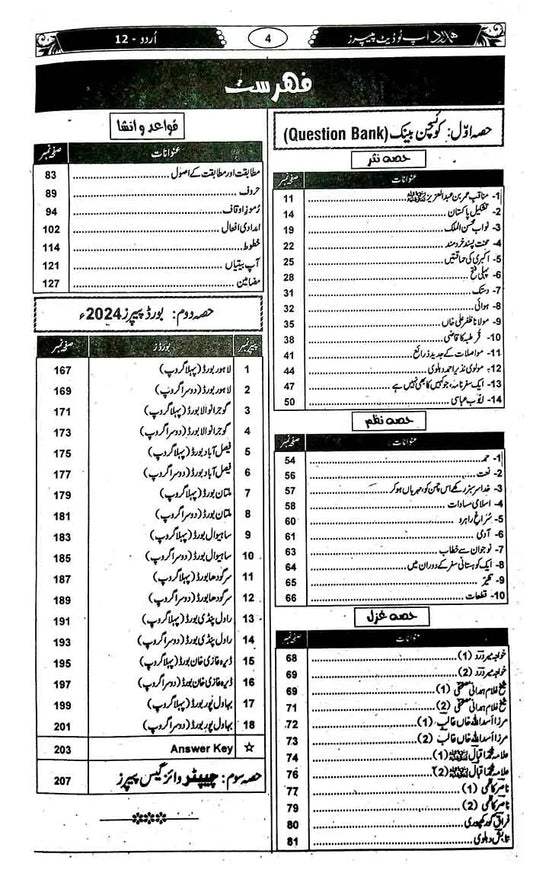 اُردو - 12
4
شاہد اپ ٹو ڈیٹ پیپرز
فہرست
حصہ اوّل: کوئسچن بینک (Question Bank)
حصہ نثر
عنوانات صفحہ نمبر
1- مناقب عمر بن عبدالعزیزؒ 11
2- تشکیل پاکستان 14
3- نواب محسن الملک 19
4- محنت پسند خردمند 22
5- اکبری کی حماقتیں 25
6- پہلی فتح 28
7- دستک 31
8- ہوائی 32
9- مولانا ظفر علی خاں 35
10- قرطبہ کا قاضی 38
11- مواصلات کے جدید ذرائع 41
12- مولوی نذیر احمد دہلوی 44
13- ایک سفرنامہ، جو کہیں کا بھی نہیں ہے 47
14- ایوب عباسی 50
حصہ نظم
عنوانات صفحہ نمبر
1- حمد 54
2- نعت 56
3- خدا سرسبز رکھے اس چمن کو، مہرباں ہو کر 57
4- اسلامی مساوات 58
5- سُراغِ راہرو 60
6- آدمی 61
7- نوجوان سے خطاب 63
8- ایک کوہستانی سفر کے دوران میں 64
9- 65
10- قطعات 66
حصہ غزل
عنوانات صفحہ نمبر
خواجہ میر درد (1) 68
خواجہ میر درد (2) 69
شیخ غلام ہمدانی مصحفی (1) 69
شیخ غلام ہمدانی مصحفی (2) 71
مرزا اسد اللہ خاں غالب (1) 72
مرزا اسد اللہ خاں غالب (2) 73
علامہ محمد اقبالؒ (1) 74
علامہ محمد اقبالؒ (2) 76
ناصر کاظمی (1) 77
ناصر کاظمی (2) 79
فراق گورکھپوری 80
تابش دہلوی 81
قواعد و انشا
عنوانات صفحہ نمبر
مطابقت اور مطابقت کے اصول 83
حروف 89
رُموزِ اوقاف 94
امدادی افعال 102
خطوط 114
آپ بیتیاں 121
مضامین 127
حصہ دوم: بورڈ پیپرز 2024ء
پیپر نمبر بورڈز صفحہ نمبر
1 لاہور بورڈ (پہلا گروپ) 167
2 لاہور بورڈ (دوسرا گروپ) 169
3 گوجرانوالا بورڈ (پہلا گروپ) 171
4 گوجرانوالا بورڈ (دوسرا گروپ) 173
5 فیصل آباد بورڈ (پہلا گروپ) 175
6 فیصل آباد بورڈ (دوسرا گروپ) 177
7 ملتان بورڈ (پہلا گروپ) 179
8 ملتان بورڈ (دوسرا گروپ) 181
9 ساہیوال بورڈ (پہلا گروپ) 183
10 ساہیوال بورڈ (دوسرا گروپ) 185
11 سرگودھا بورڈ (پہلا گروپ) 187
12 سرگودھا بورڈ (دوسرا گروپ) 189
13 راول پنڈی بورڈ (پہلا گروپ) 191
14 راول پنڈی بورڈ (دوسرا گروپ) 193
15 ڈیرہ غازی خان بورڈ (پہلا گروپ) 195
16 ڈیرہ غازی خان بورڈ (دوسرا گروپ) 197
17 بہاول پور بورڈ (پہلا گروپ) 199
18 بہاول پور بورڈ (دوسرا گروپ) 201
☆ Answer Key 203
حصہ سوم: چیپٹر وائز گیس پیپرز 207